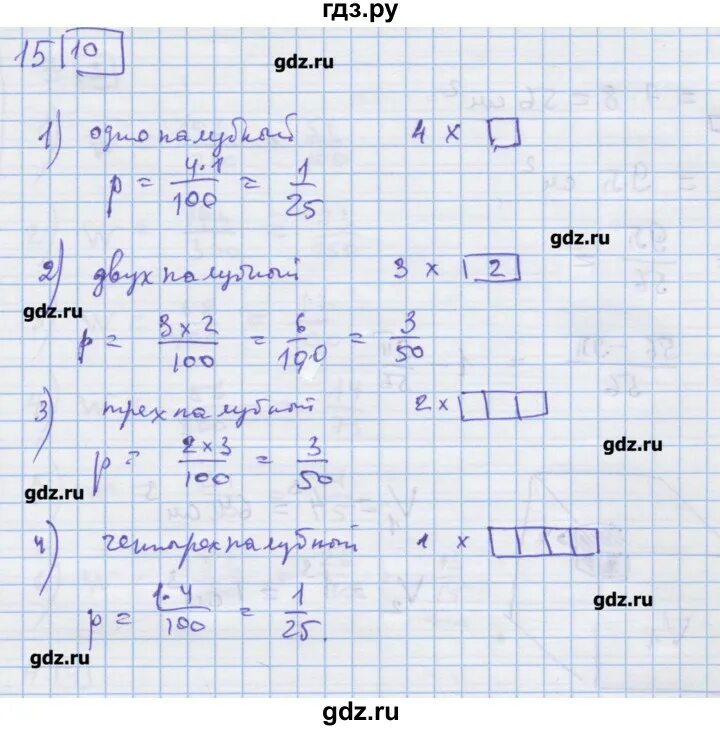 гдз.ру
15 10
gdz.ru
1) однопалубный 4 x
p = 4·1/100 = 1/25
gdz.ru
2) двухпалубный 3 x 2
gdz.ru
p = 3 x 2/100 = 6/100 = 3/50
3) трехпалубный 2 x
gdz.ru
p = 2 x 3/100 = 3/50
gdz.ru
4) четырехпалубный 1 x
gdz.ru
p = 1·4/100 = 1/25.
gdz.ru
gdz.ru